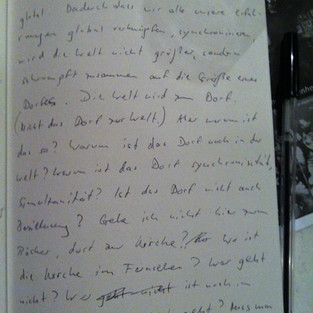 global. Dadurch dass wir alle unsere Erfah-
rungen global verknüpfen, synchronisieren,
wird die Welt nicht größer, sondern
schrumpft zusammen auf die Größe eines
Dorfes. Die Welt wird zum Dorf.
(Nicht das Dorf zur Welt.) Aber warum ist
das so? Warum ist das Dorf auch in der
Welt? Warum ist das Dorf Synchronizität,
Simultanität? Ist das Dorf nicht auch
? Gehe ich nicht hier zum
Bäcker, dort zur Kirche? Wo ist
die Kirche im Fernsehen? Wer geht
nicht? Wer ist noch im
geht? Muss man